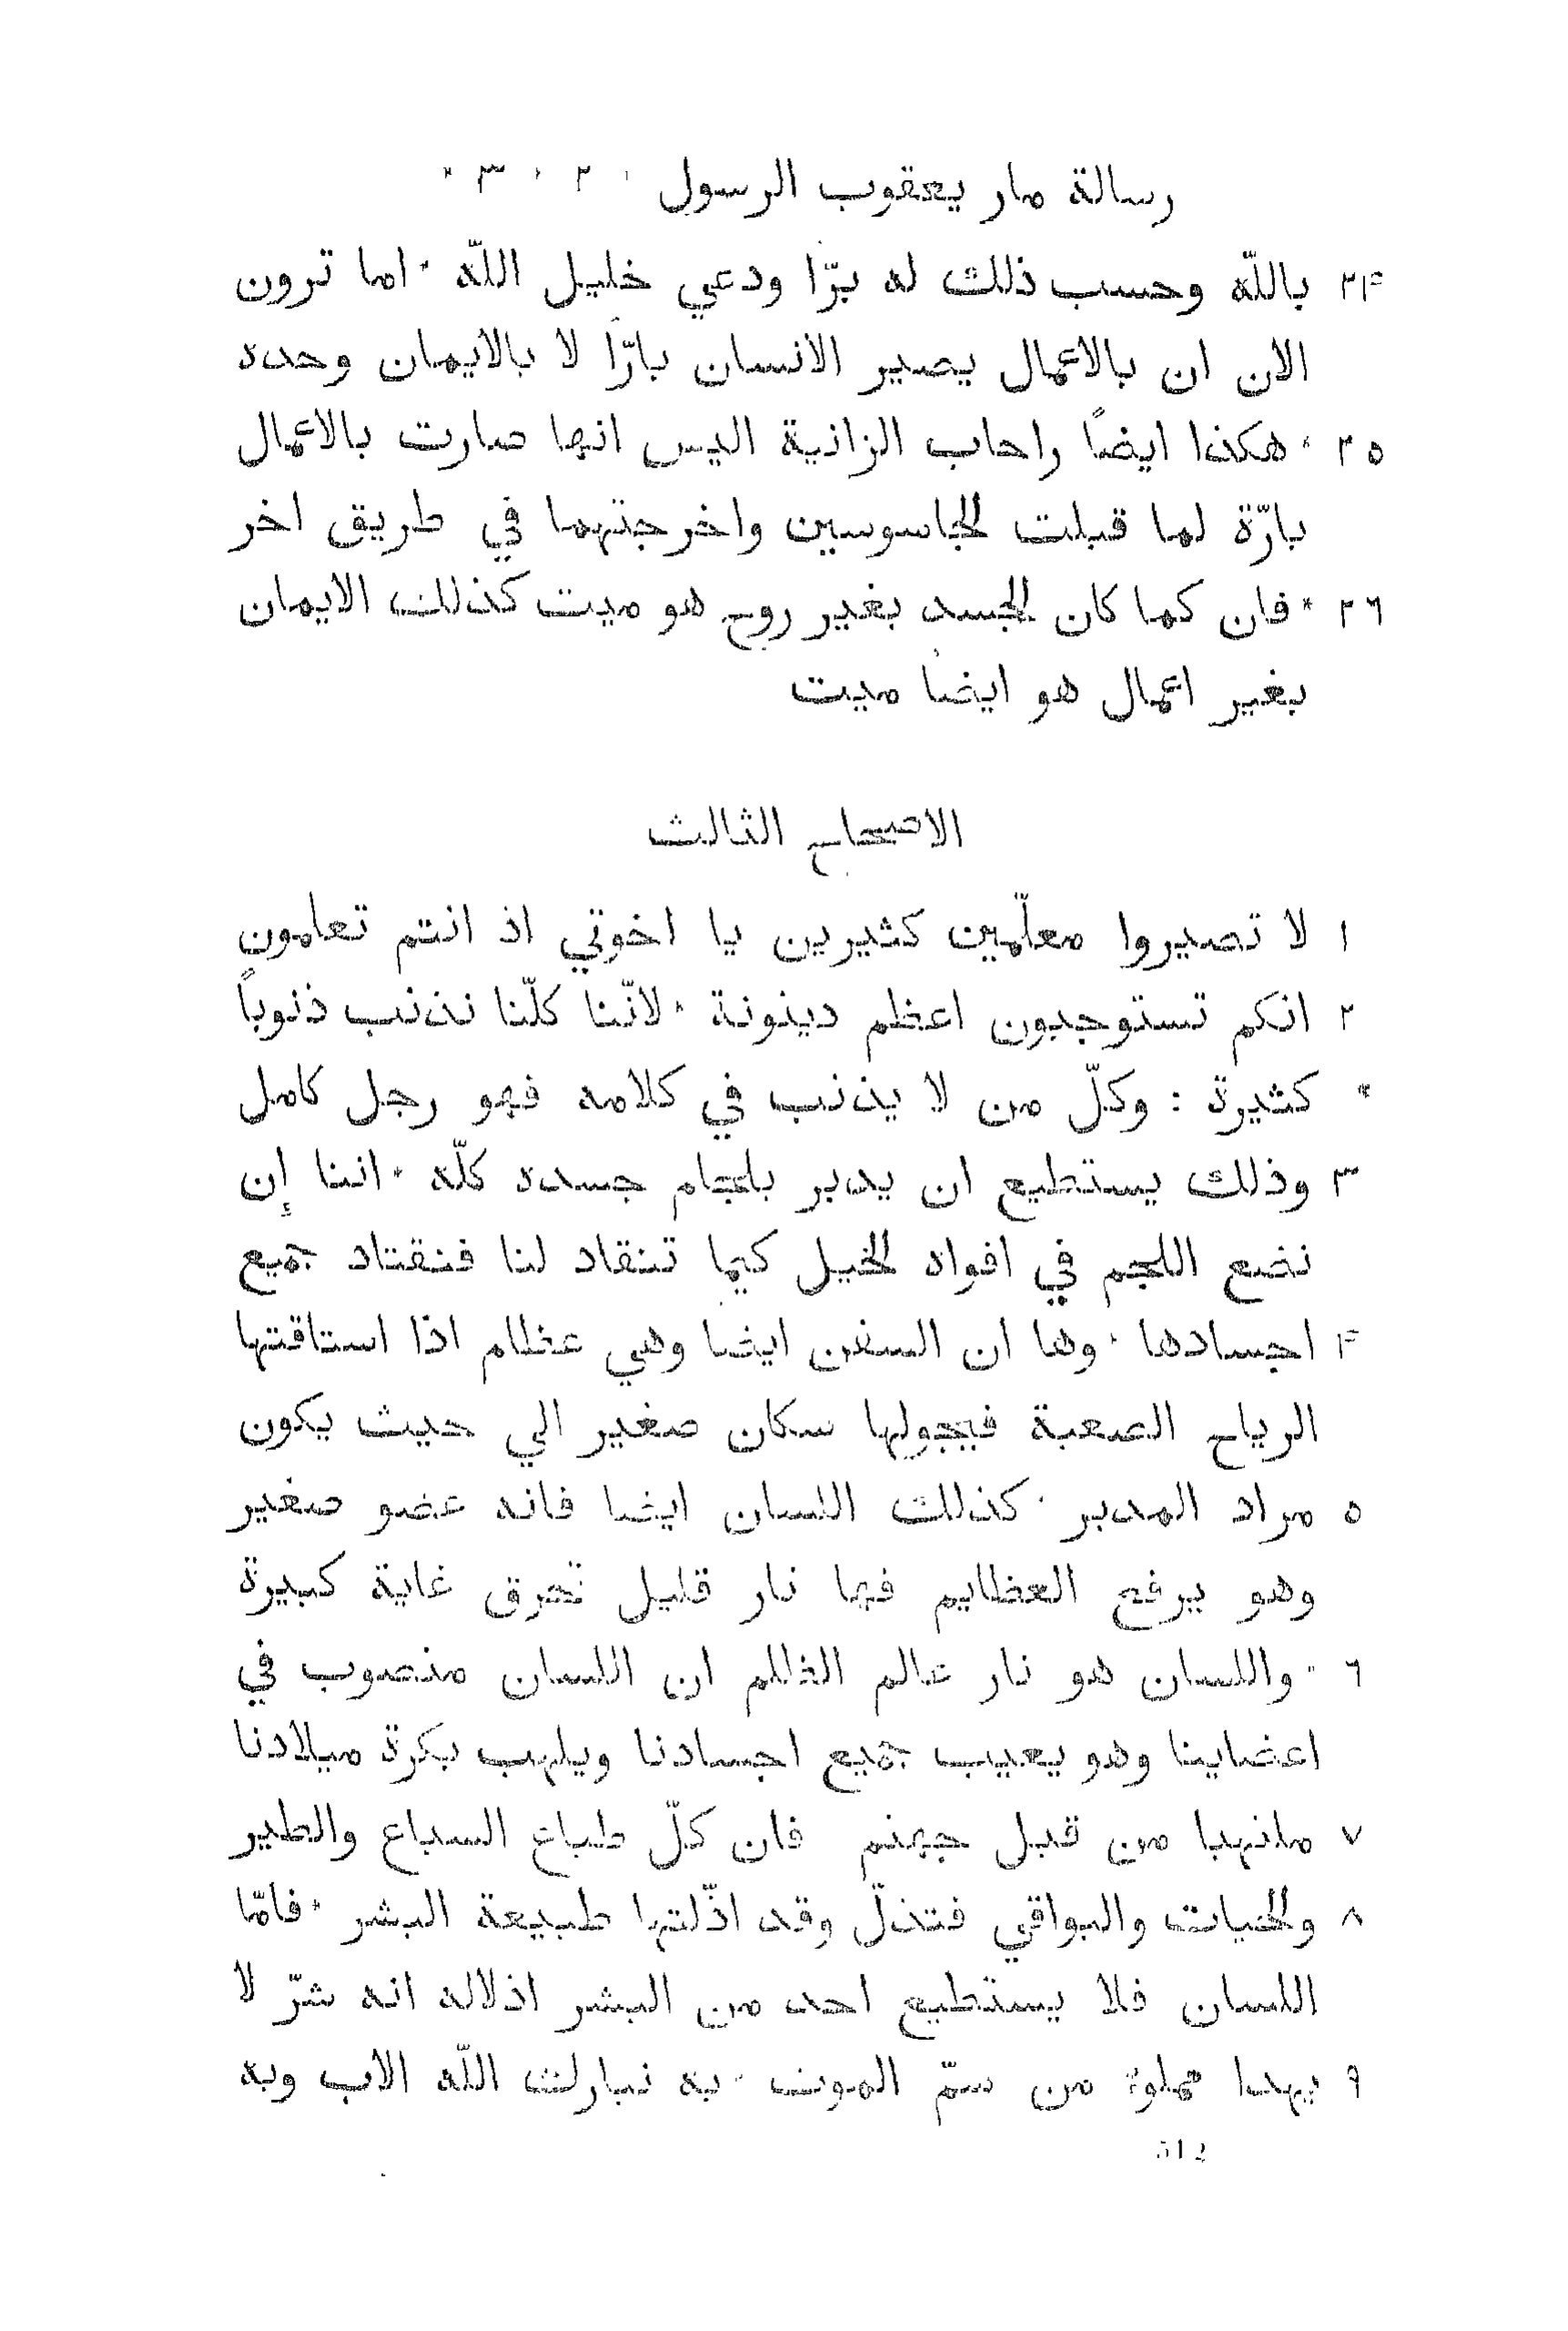 رسالة مار يعقوب الرسول ٢ ٣
٢٤ باللّه وحسب ذلك له برّا ودعي خليل اللّه * اما ترون
الان ان بالاعمال يصير الانسان بارّا لا بالايمان وحده
٢٥ * هكذا ايضاً راحاب الزانية اليس انها صارت بالاعمال
بارّة لما قبلت الجاسوسين واخرجتهما في طريق اخر
٢٦ * فان كما كان الجسد بغير روح هو ميت كذلك الايمان
بغير اعمال هو ايضا ميت
الاصحاح الثالث
١ لا تصيروا معلّمين كثيرين يا اخوتي اذ انتم تعلمون
٢ انكم تستوجبون اعظم دينونة * لانّنا كلّنا نذنب ذنوباً
* كثيرة : وكلّ من لا يذنب في كلامه فهو رجل كامل
٣ وذلك يستطيع ان يدبر بلجام جسده كلّه * اننا إن
نضع اللجم في افواه الخيل كيما تنقاد لنا فنقتاد جميع
٤ اجسادها * وها ان السفن ايضا وهي عظام اذا استاقتها
الرياح الصعبة فيحولها سكان صغير الي حيث يكون
٥ مراد المدبر * كذلك اللسان ايضا فانه عضو صغير
وهو يرفع العظايم فيما نار قليل تحرق غابة كبيرة
٦ * واللسان هو نار عالم الظلم ان اللسان منصوب في
اعضاينا وهو يعيب جميع اجسادنا ويلهب بكرة ميلادنا
٧ ملتهبا من قبل جهنم فان كلّ طباع السباع والطير
٨ والحيات والبواقي فتذلّ وقد اذّلتها طبيعة البشر * فامّا
اللسان فلا يستطيع احد من البشر اذلاله انه شرّ لا
٩ يهدا مملوة من سمّ الموت * به نبارك اللّه الاب وبه